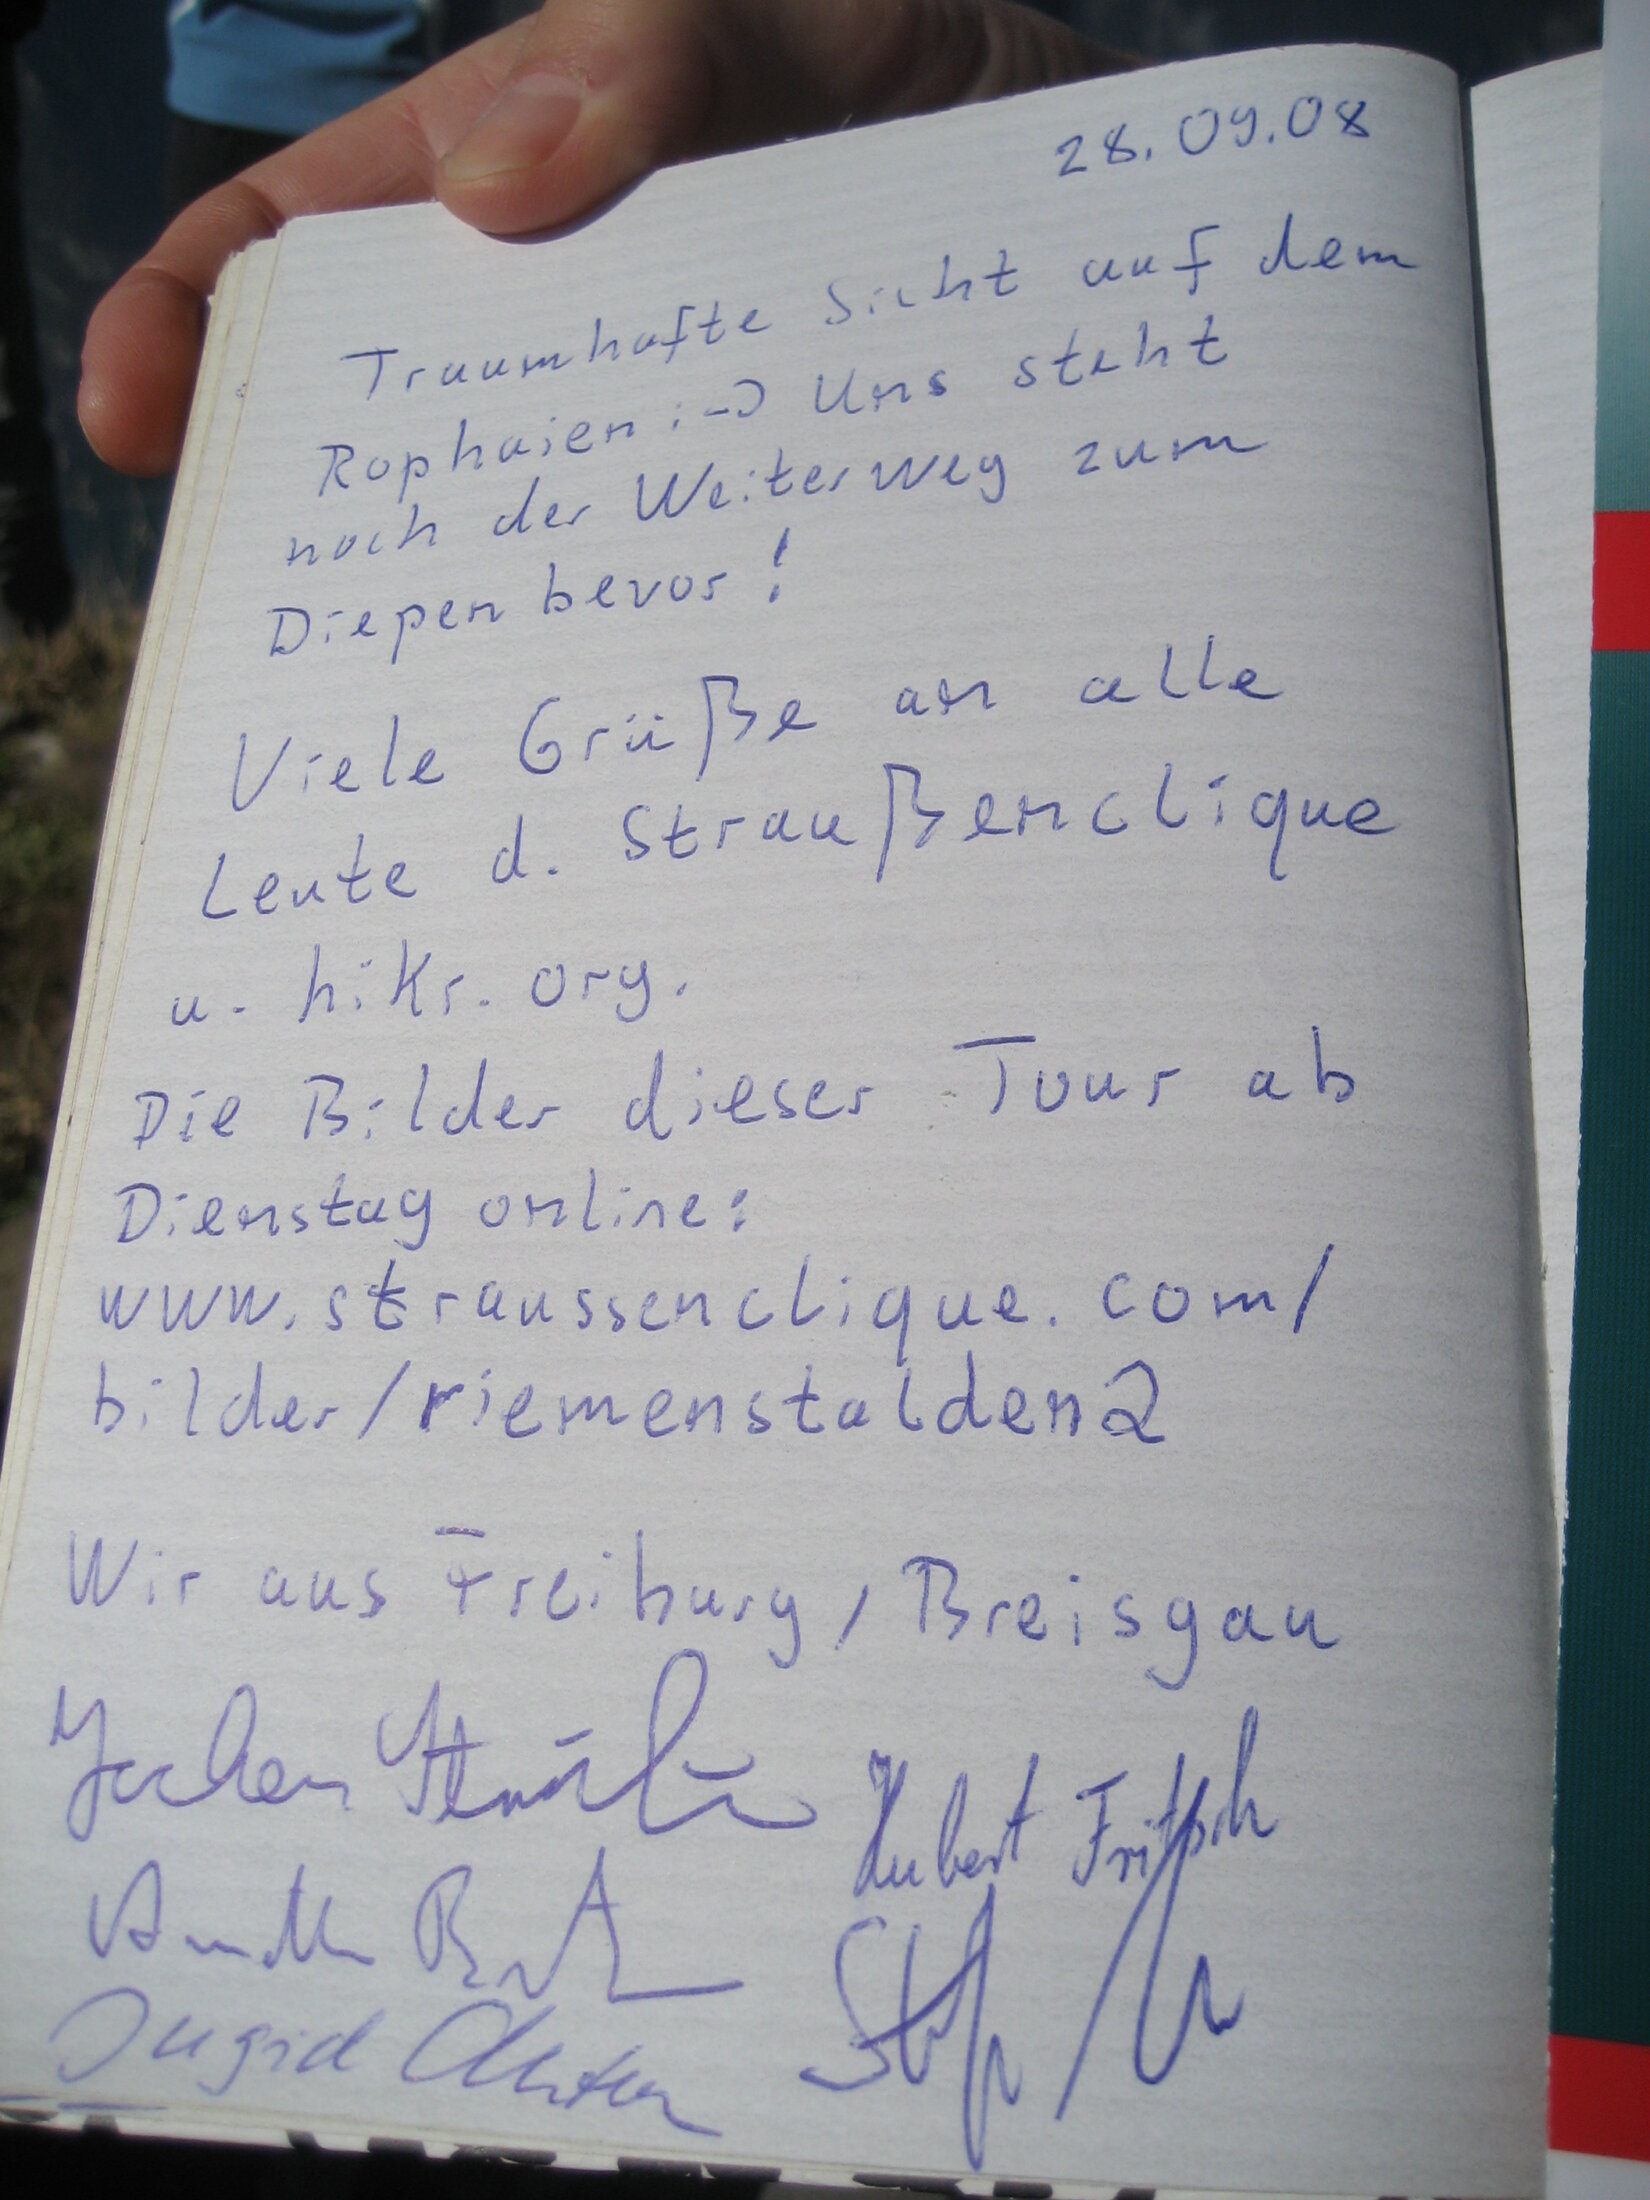 28.09.08
Traumhafte Sicht auf dem
Rophaien :-) Uns steht
noch der Weiterweg zum
Diepen bevor!
Viele Grüße an alle
Leute d. Straußenclique
u. hikr.org.
Die Bilder dieser Tour ab
Dienstag online:
www.straussenclique.com/
bilder/riemenstalden2
Wir aus Freiburg, Breisgau
Jochen
Hubert Fritsch
Ingrid